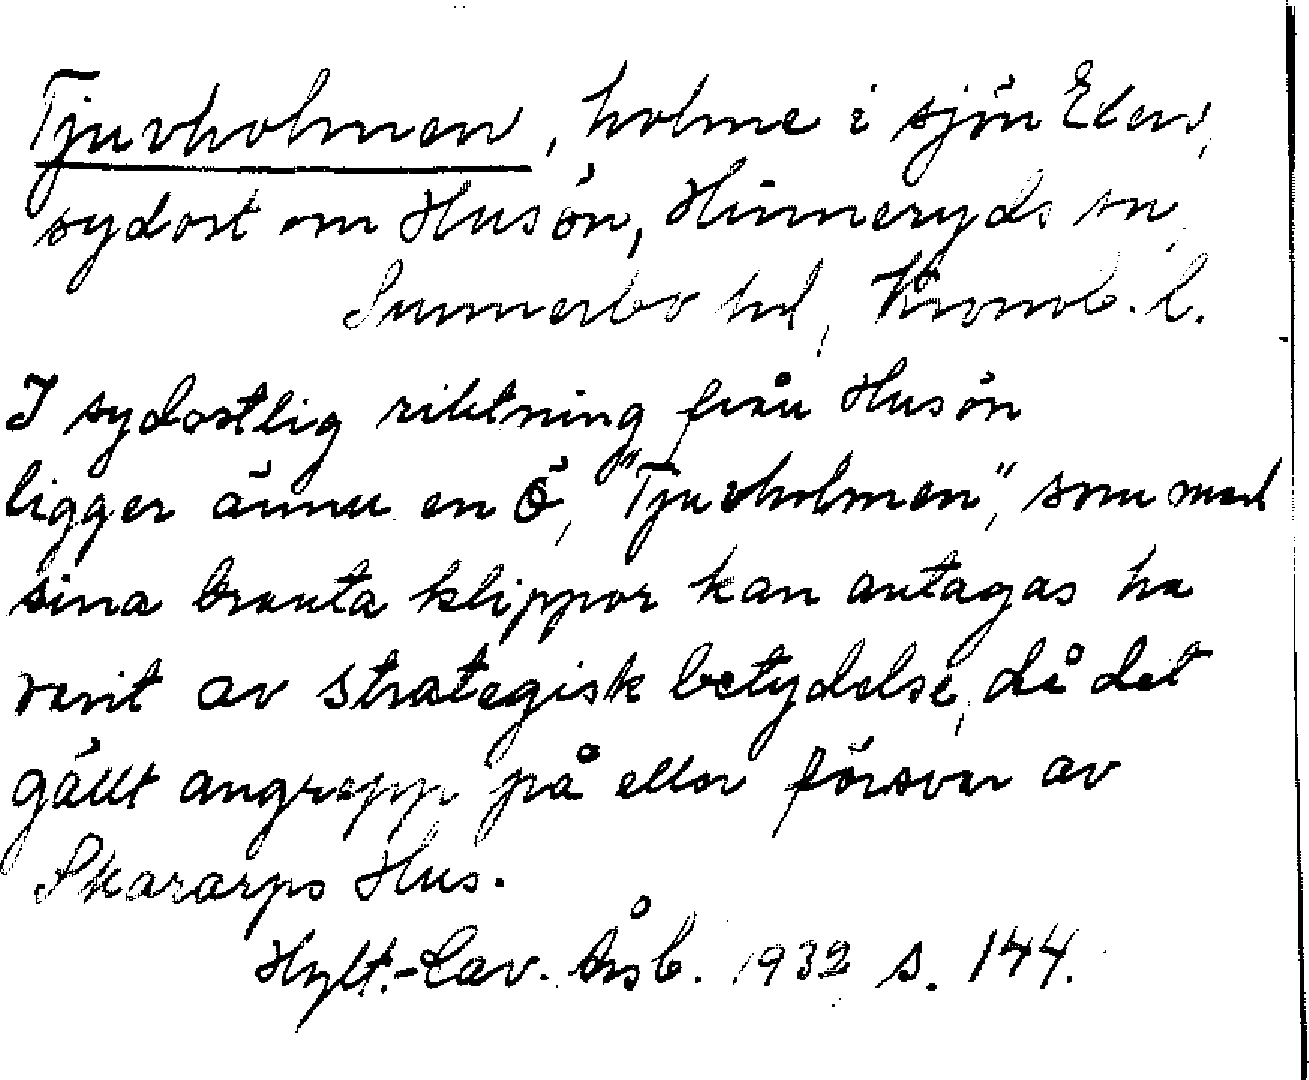 Tjuvholmen, holme i sjön Exen,
sydost om Husön, Hinneryds sn,
Sunnerbo hd, Kronob. l.
I sydostlig riktning från Husön
ligger ännu en ö, "Tjuvholmen", som med
sina branta klippor kan antagas ha
varit av strategisk betydelse, då det
gällt angrepp på eller försvar av
Skararps Hus.
Hylt.-Cav. Årsb. 1932 s. 144.